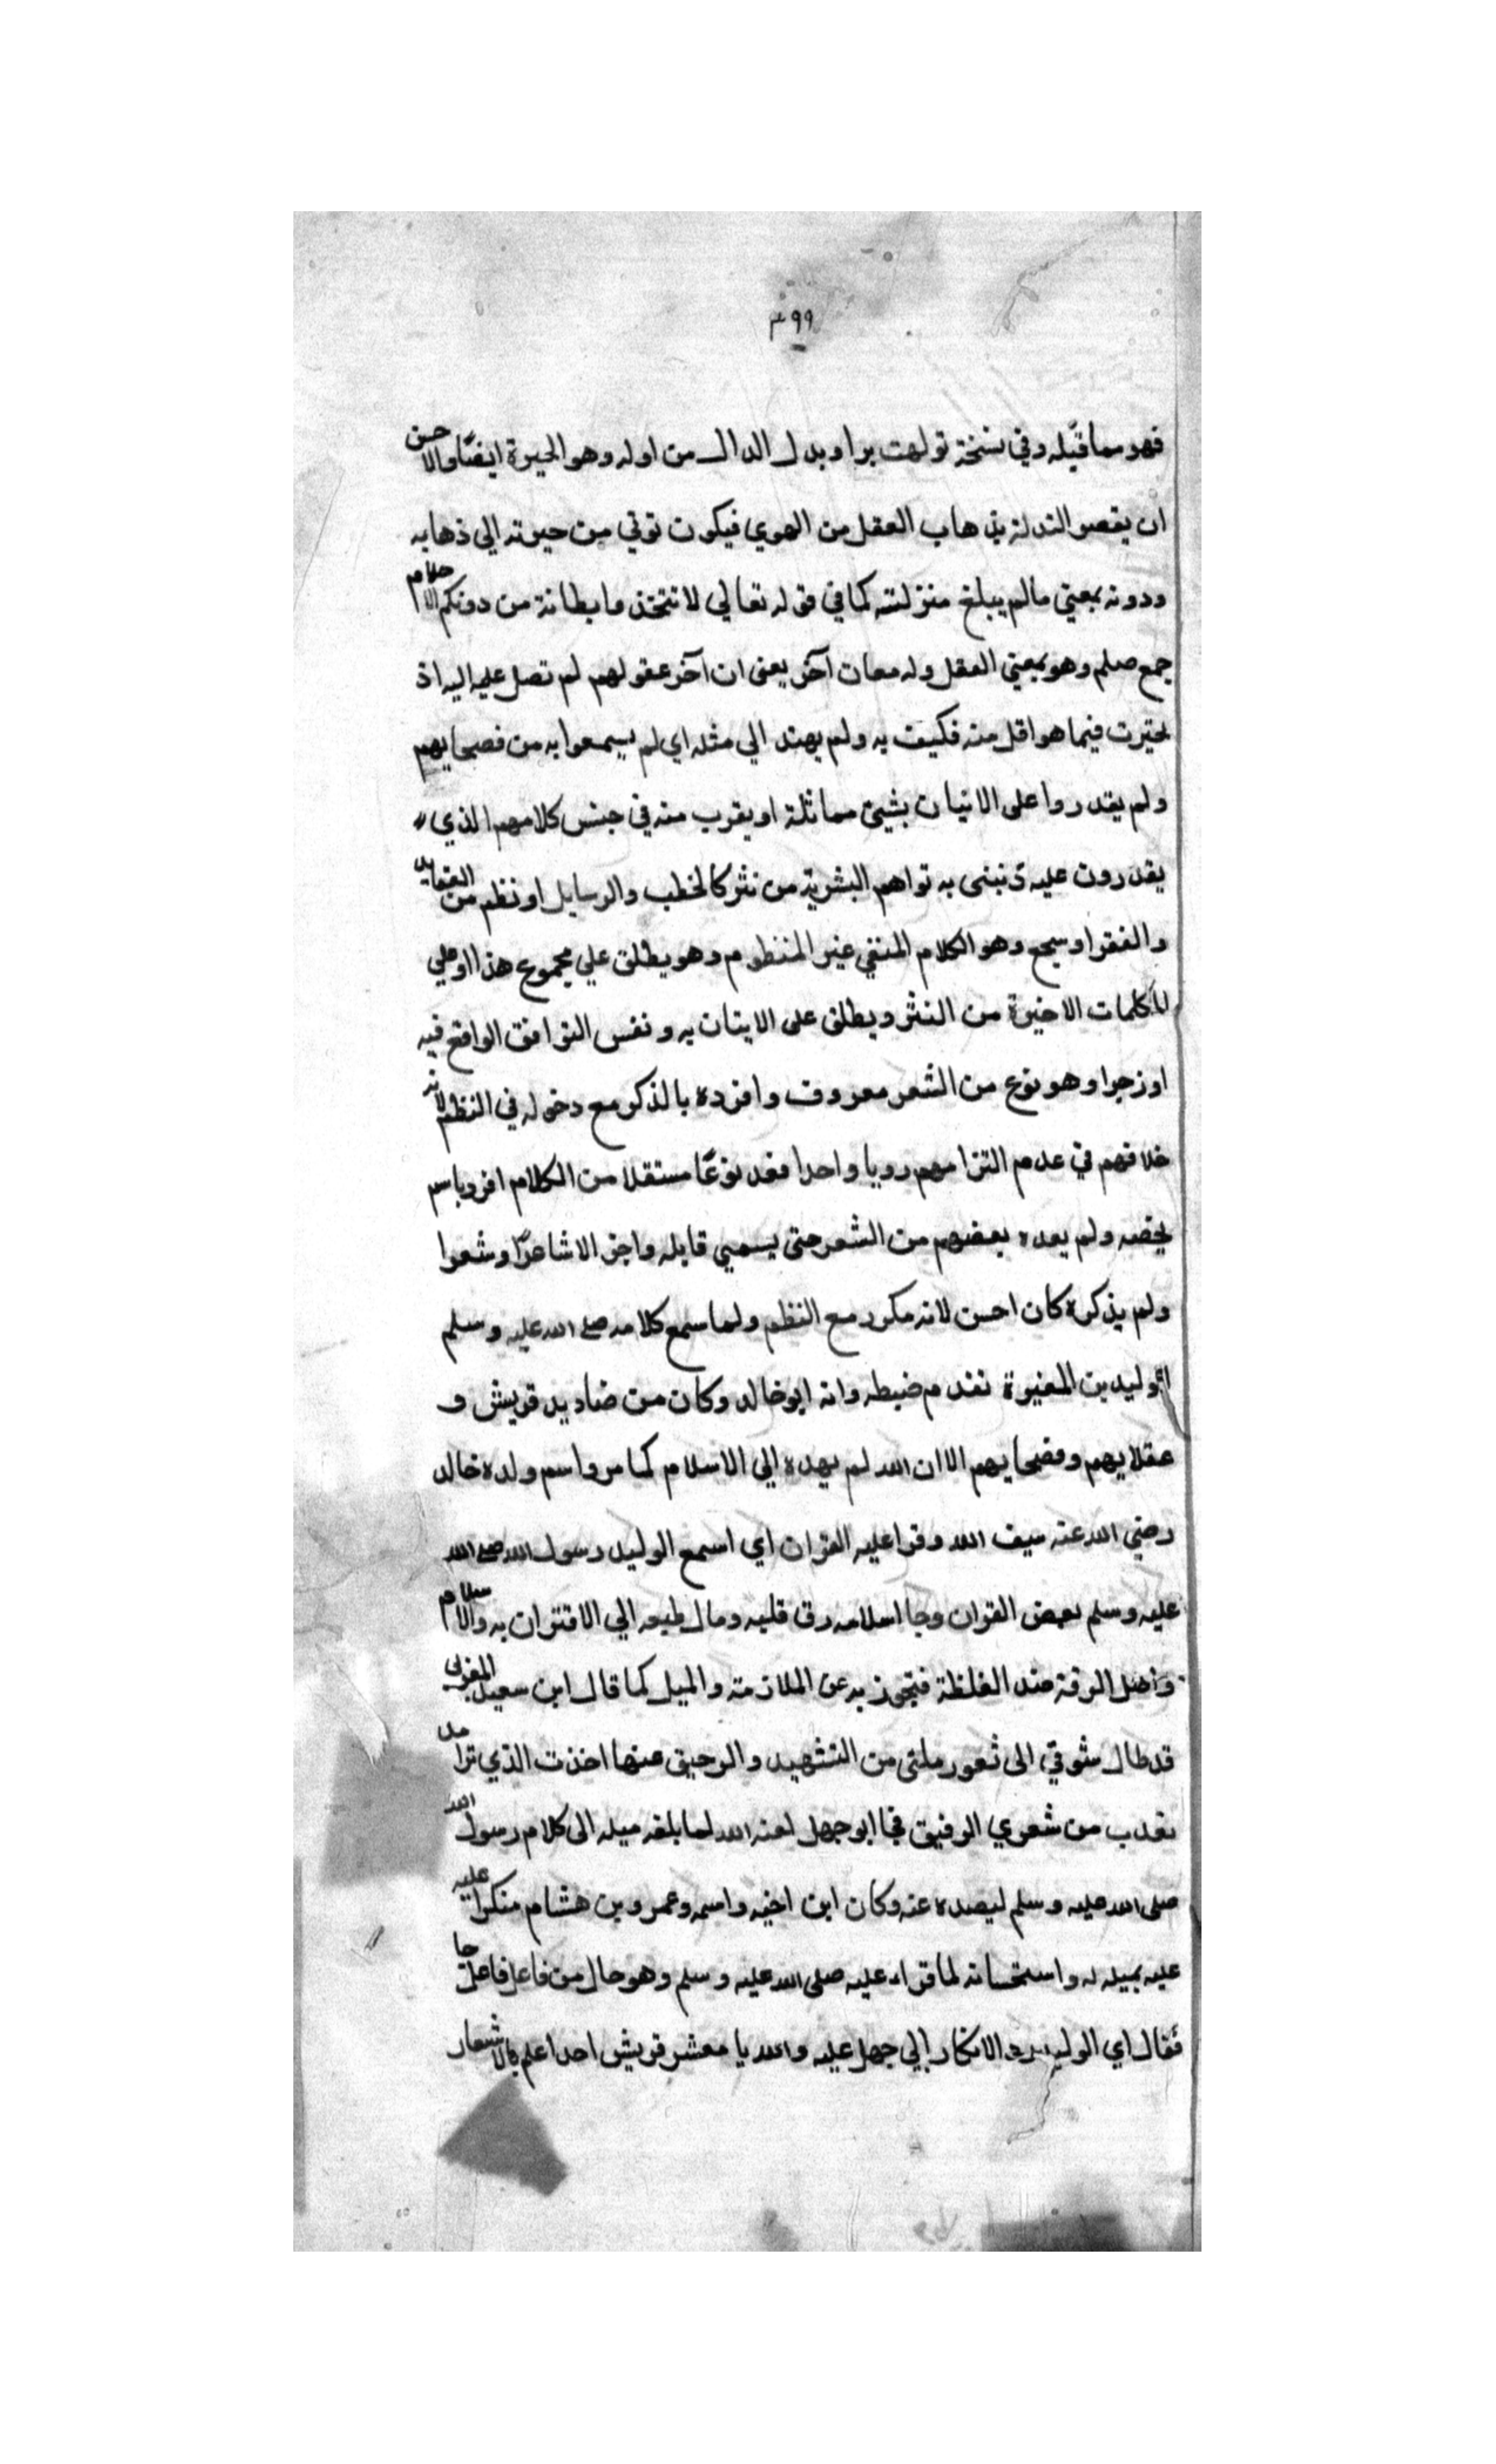 ٣٩٩
فهو مما قبله وفي نسخة تولهت بواو بدل الدال من اوله وهو الحيرة ايضًا والاحسن
ان يفسر التدله بذهاب العقل من الهوي فيكون ترقي من حيرته الي ذهابه
ودونه بمعني مالم يبلغ منزلته كما في قوله تعالي لا تتخذ وا بطانة من دونكم الاحلام
جمع حلم وهو بمعني العقل وله معان آخر يعني ان آخر عقولهم لم تصل عليه اليه اذ
تحيرت فيما هو اقل منه فكيف به ولم يهتد الي مثله اي لم يسمعوا به من فصحايهم
ولم يقدروا على الاتيان بشيئ مماثلة او يقرب منه في جنس كلامهم الذي
يقدرون عليه به البشرية من نثر كالخطب والرسايل او نظم من
والفقر او سجع وهو الكلام المقفي غير المنظوم وهو يطلق علي مجموع هذا او علي
الكلمات الاخيرة من النثر ويطلق على الاتيان به ونفس التوافق الواقع فيه
او زجرا وهو نوع من الشعر معروف وافرده بالذكر مع دخوله في النظم لانه
خلافهم في عدم التزامهم رويا واحدا فعد نوعًا مستقلا من الكلام افرد باسم
يخصه ولم يعده بعضهم من الشعر حتى يسمي قايله راجز الا شاعرًا وشعرا
ولم يذكره كان احسن لانه مكرر مع النظم ولما سمع كلامه صلى الله عليه وسلم
الوليد بن المغيرة تقدم ضبطه وانه ابو خالد وكان من صناديد قريش و
عقلايهم وفصحايهم الا ان الله لم يهده الي الاسلام كما مر واسم ولده خالد
رضي الله عنه سيف الله وقرا عليه القران اي اسمع الوليد رسول الله صلى الله
عليه وسلم بعض القران وجا اسلامه رق قلبه ومال طبعه الي الاقتران به والاسلام
واصل الرقة ضد الغلظة فتجوز به عن الملازمة والميل كما قال ابن سعيد المغربي
قد طال شوقي الى ثغور ملتي من التشهيد والرحيق عنها اخذت الذي تراه
يعذب من شعري الرقيق فجا ابو جهل لعنه الله لما بلغه ميله الى كلام رسول الله
صلى الله عليه وسلم ليصده عنه وكان ابن اخيه واسمه وعمرو بن هشام منكرا عليه
عليه بميله له واستحسانه لما قراه عليه صلى الله عليه وسلم وهو حال من فاعل فاعل جا
فقال اي الوليد الانكار ابي جهل عليه والله يا معشر قريش احد اعلم بالاشعار